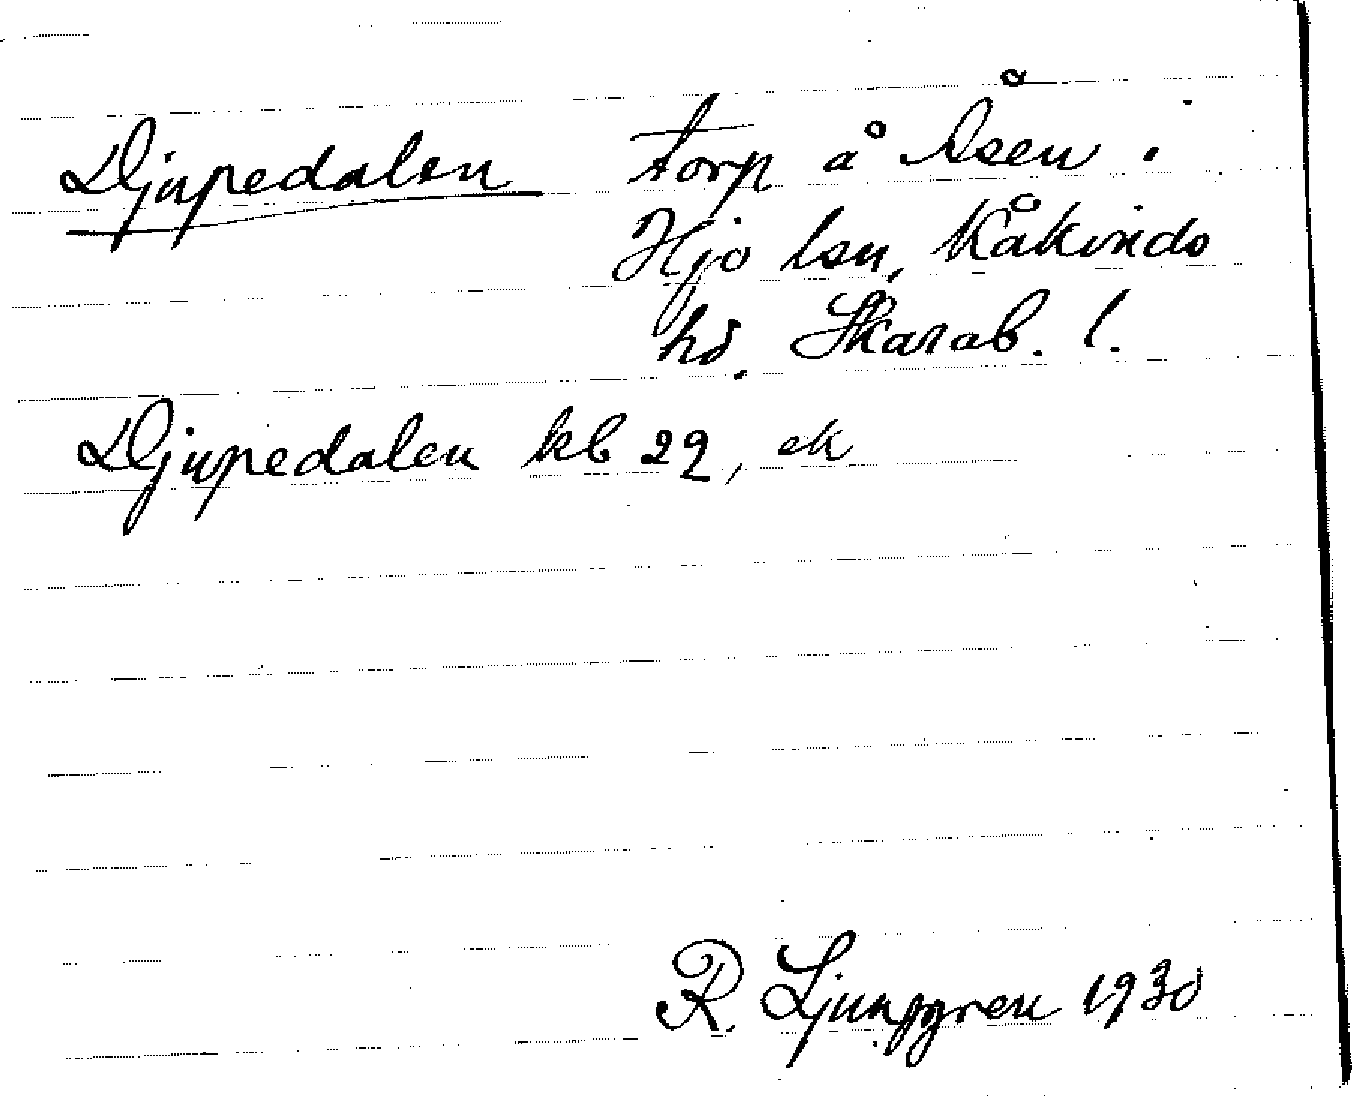 Djupedalen torp å Åsen i
Hjo lsn, Kåkinds
hd. Skarab. l.
Djupedalen kb 22, ek
R. Ljunggren 1930